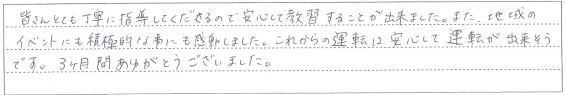 皆さんとても丁寧に指導してくださるので安心して教習することが出来ました。また、地域の
イベントにも積極的な事にも感動しました。これからの運転は安心して運転が出来そう
です。3ヶ月間ありがとうございました。